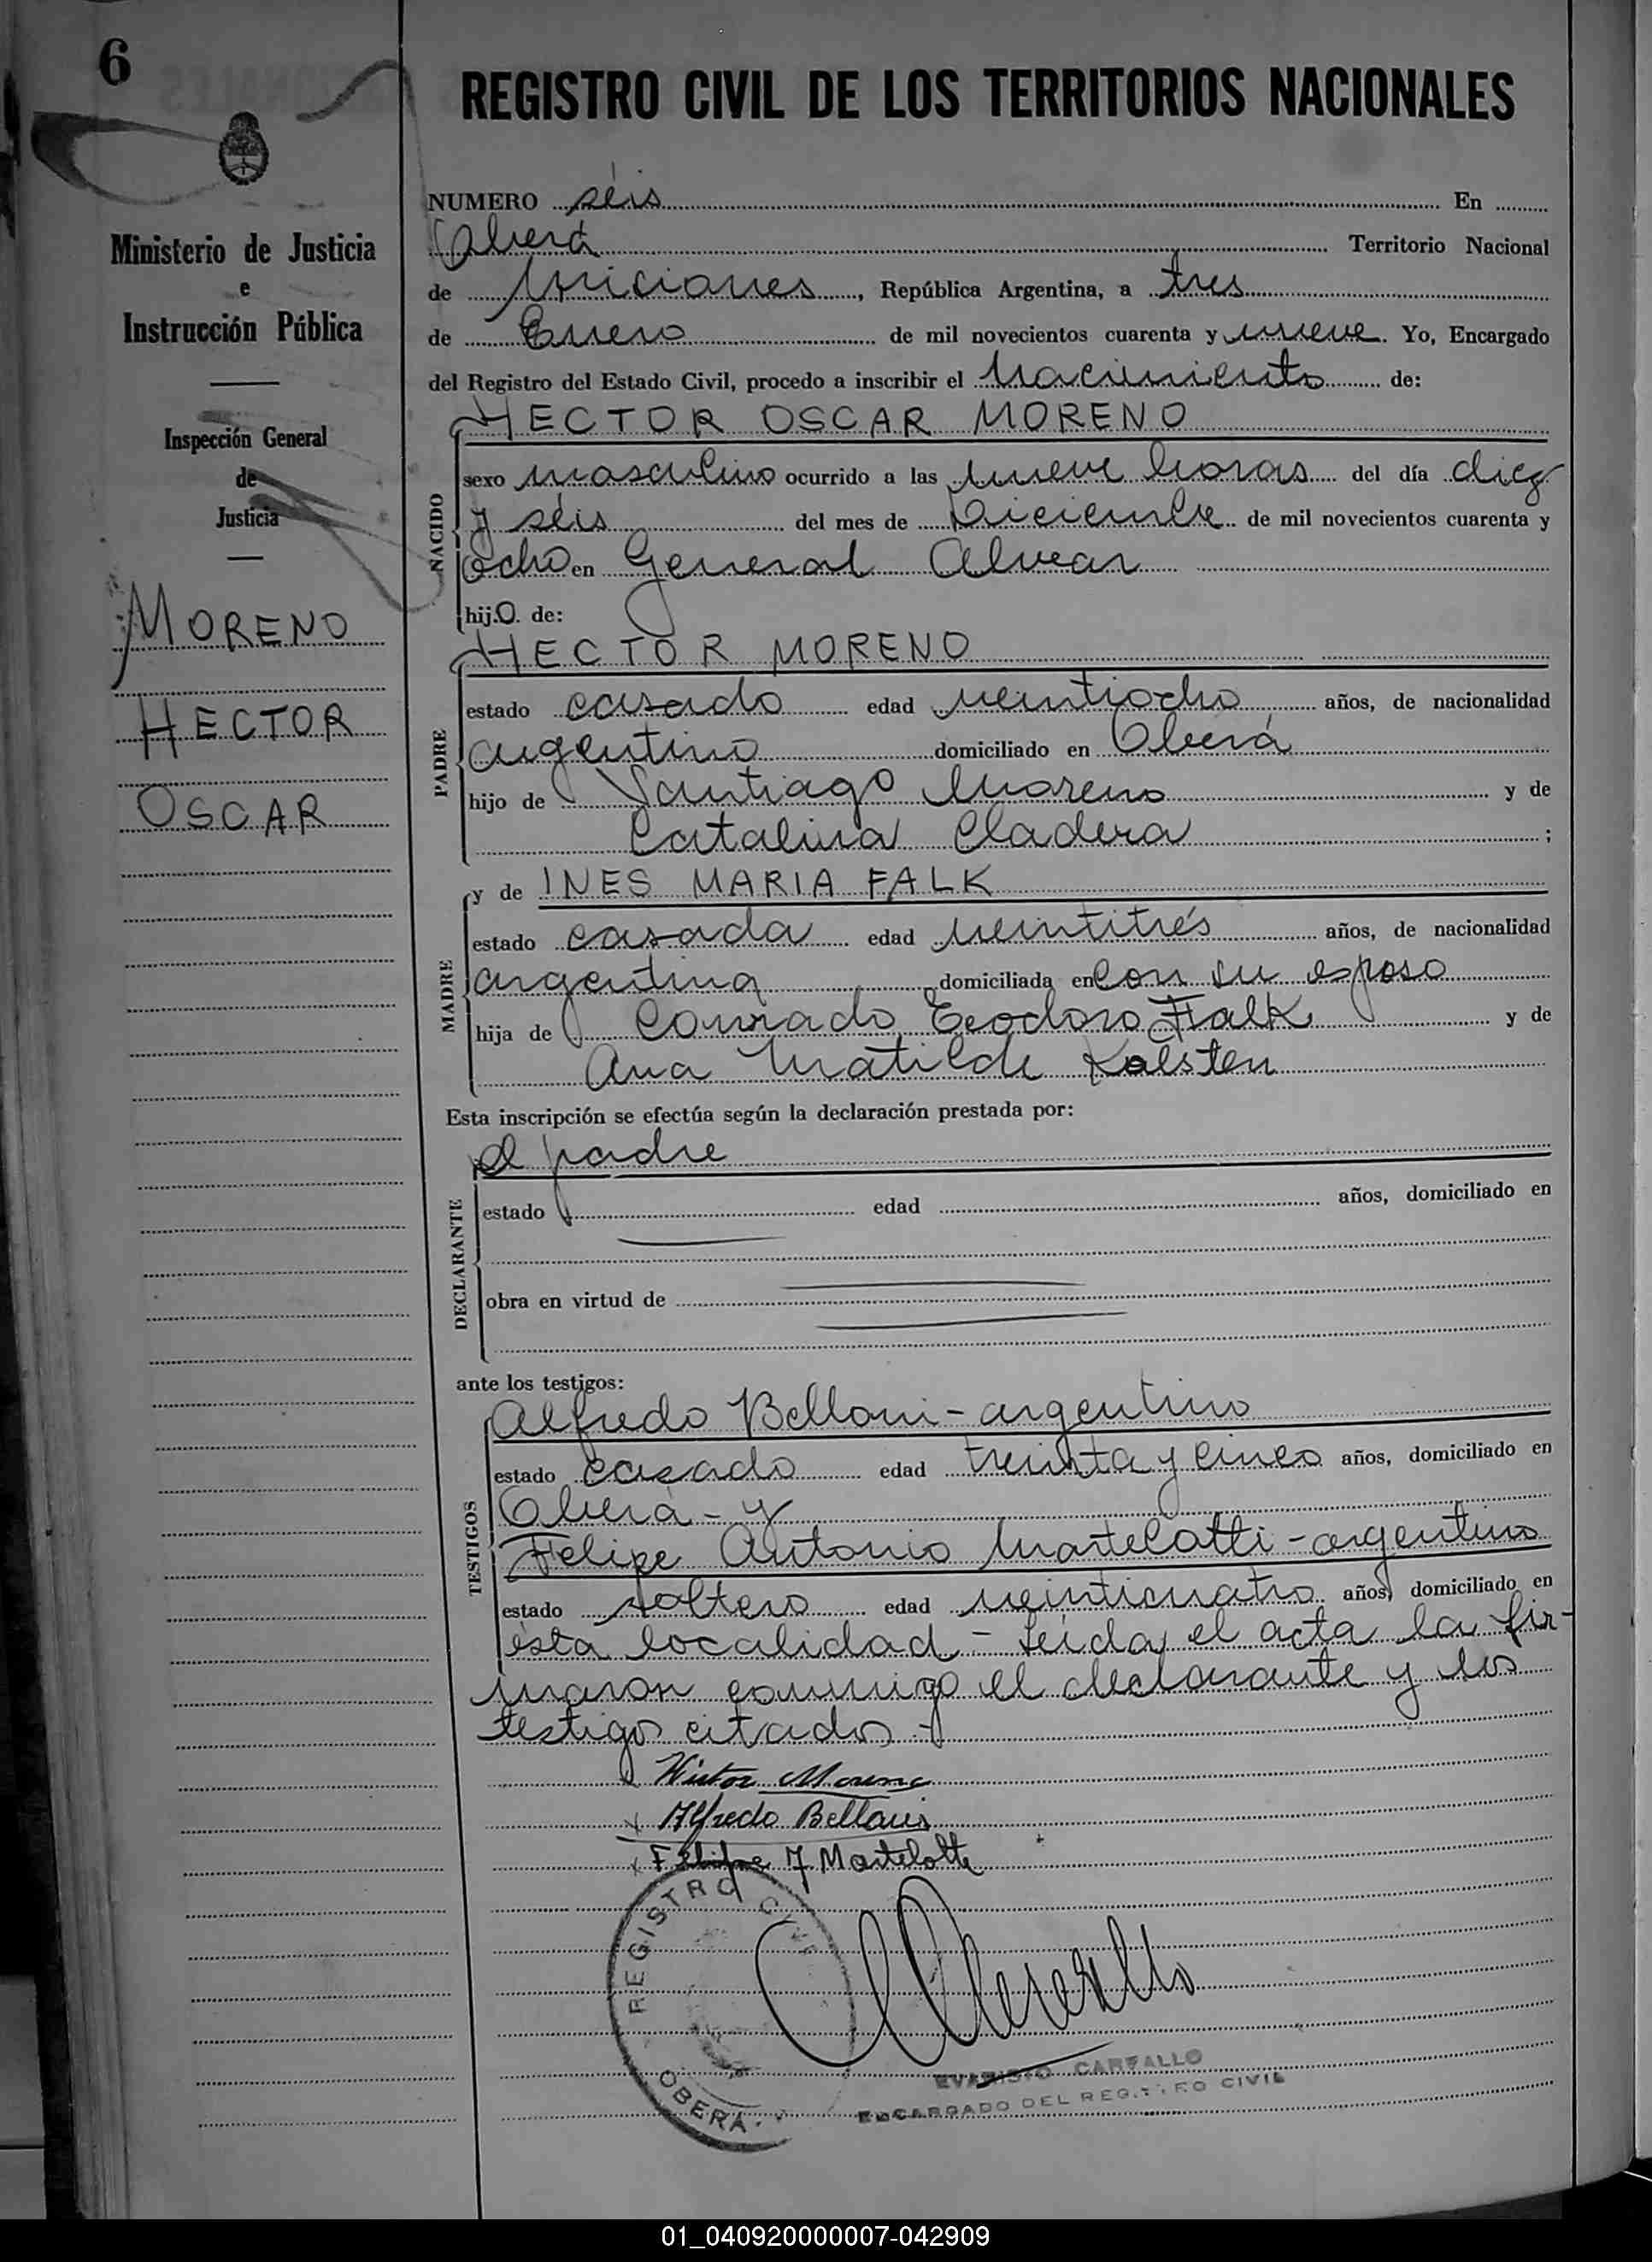 6
Ministerio de Justicia
e
Instrucción Pública
Inspección General
de
Justicia
MORENO
HECTOR
OSCAR
REGISTRO CIVIL DE LOS TERRITORIOS NACIONALES
NUMERO séis En
Oberá Territorio Nacional
de Misiones, República Argentina, a tres
de Enero de mil novecientos cuarenta y nueve. Yo, Encargado
del Registro del Estado Civil, procedo a inscribir el Nacimiento de:
NACIDO
HECTOR OSCAR MORENO
sexo masculino ocurrido a las nueve horas del día diez
y séis del mes de Diciembre de mil novecientos cuarenta y
ocho en General Alvear
hij.o. de:
PADRE
HECTOR MORENO
estado casado edad veintiocho años, de nacionalidad
argentino domiciliado en Oberá
hijo de Santiago Moreno y de
Catalina Cladera ;
MADRE
y de INES MARIA FALK
estado casada edad veintitrés años, de nacionalidad
argentina domiciliada en con su esposo
hija de Conrado Teodoro Falk y de
Ana Matilde Kalsten
Esta inscripción se efectúa según la declaración prestada por:
DECLARANTE
el padre
estado edad años, domiciliado en
obra en virtud de
ante los testigos:
TESTIGOS
Alfredo Belloni - argentino
estado casado edad treinta y cinco años, domiciliado en
Oberá - y
Felipe Antonio Martelotti - argentino
estado soltero edad veinticuatro años, domiciliado en
ésta localidad - Leída el acta la fir-
maron conmigo el declarante y los
testigos citados -
Hector Moreno
x Alfredo Belloni
x Felipe A. Martelotti
REGISTRO CIVIL
OBERA
EVARISTO CARVALLO
ENCARGADO DEL REGISTRO CIVIL
01_040920000007-042909